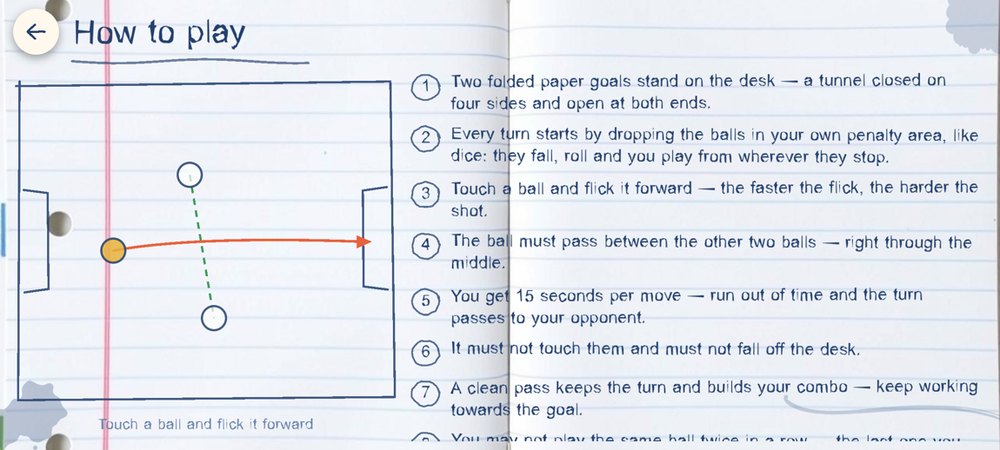 How to play
1 Two folded paper goals stand on the desk — a tunnel closed on
four sides and open at both ends.
2 Every turn starts by dropping the balls in your own penalty area, like
dice: they fall, roll and you play from wherever they stop.
3 Touch a ball and flick it forward — the faster the flick, the harder the
shot.
4 The ball must pass between the other two balls — right through the
middle.
5 You get 15 seconds per move — run out of time and the turn
passes to your opponent.
6 It must not touch them and must not fall off the desk.
7 A clean pass keeps the turn and builds your combo — keep working
towards the goal.
You may not play the same ball twice in a row — the last one you
Touch a ball and flick it forward